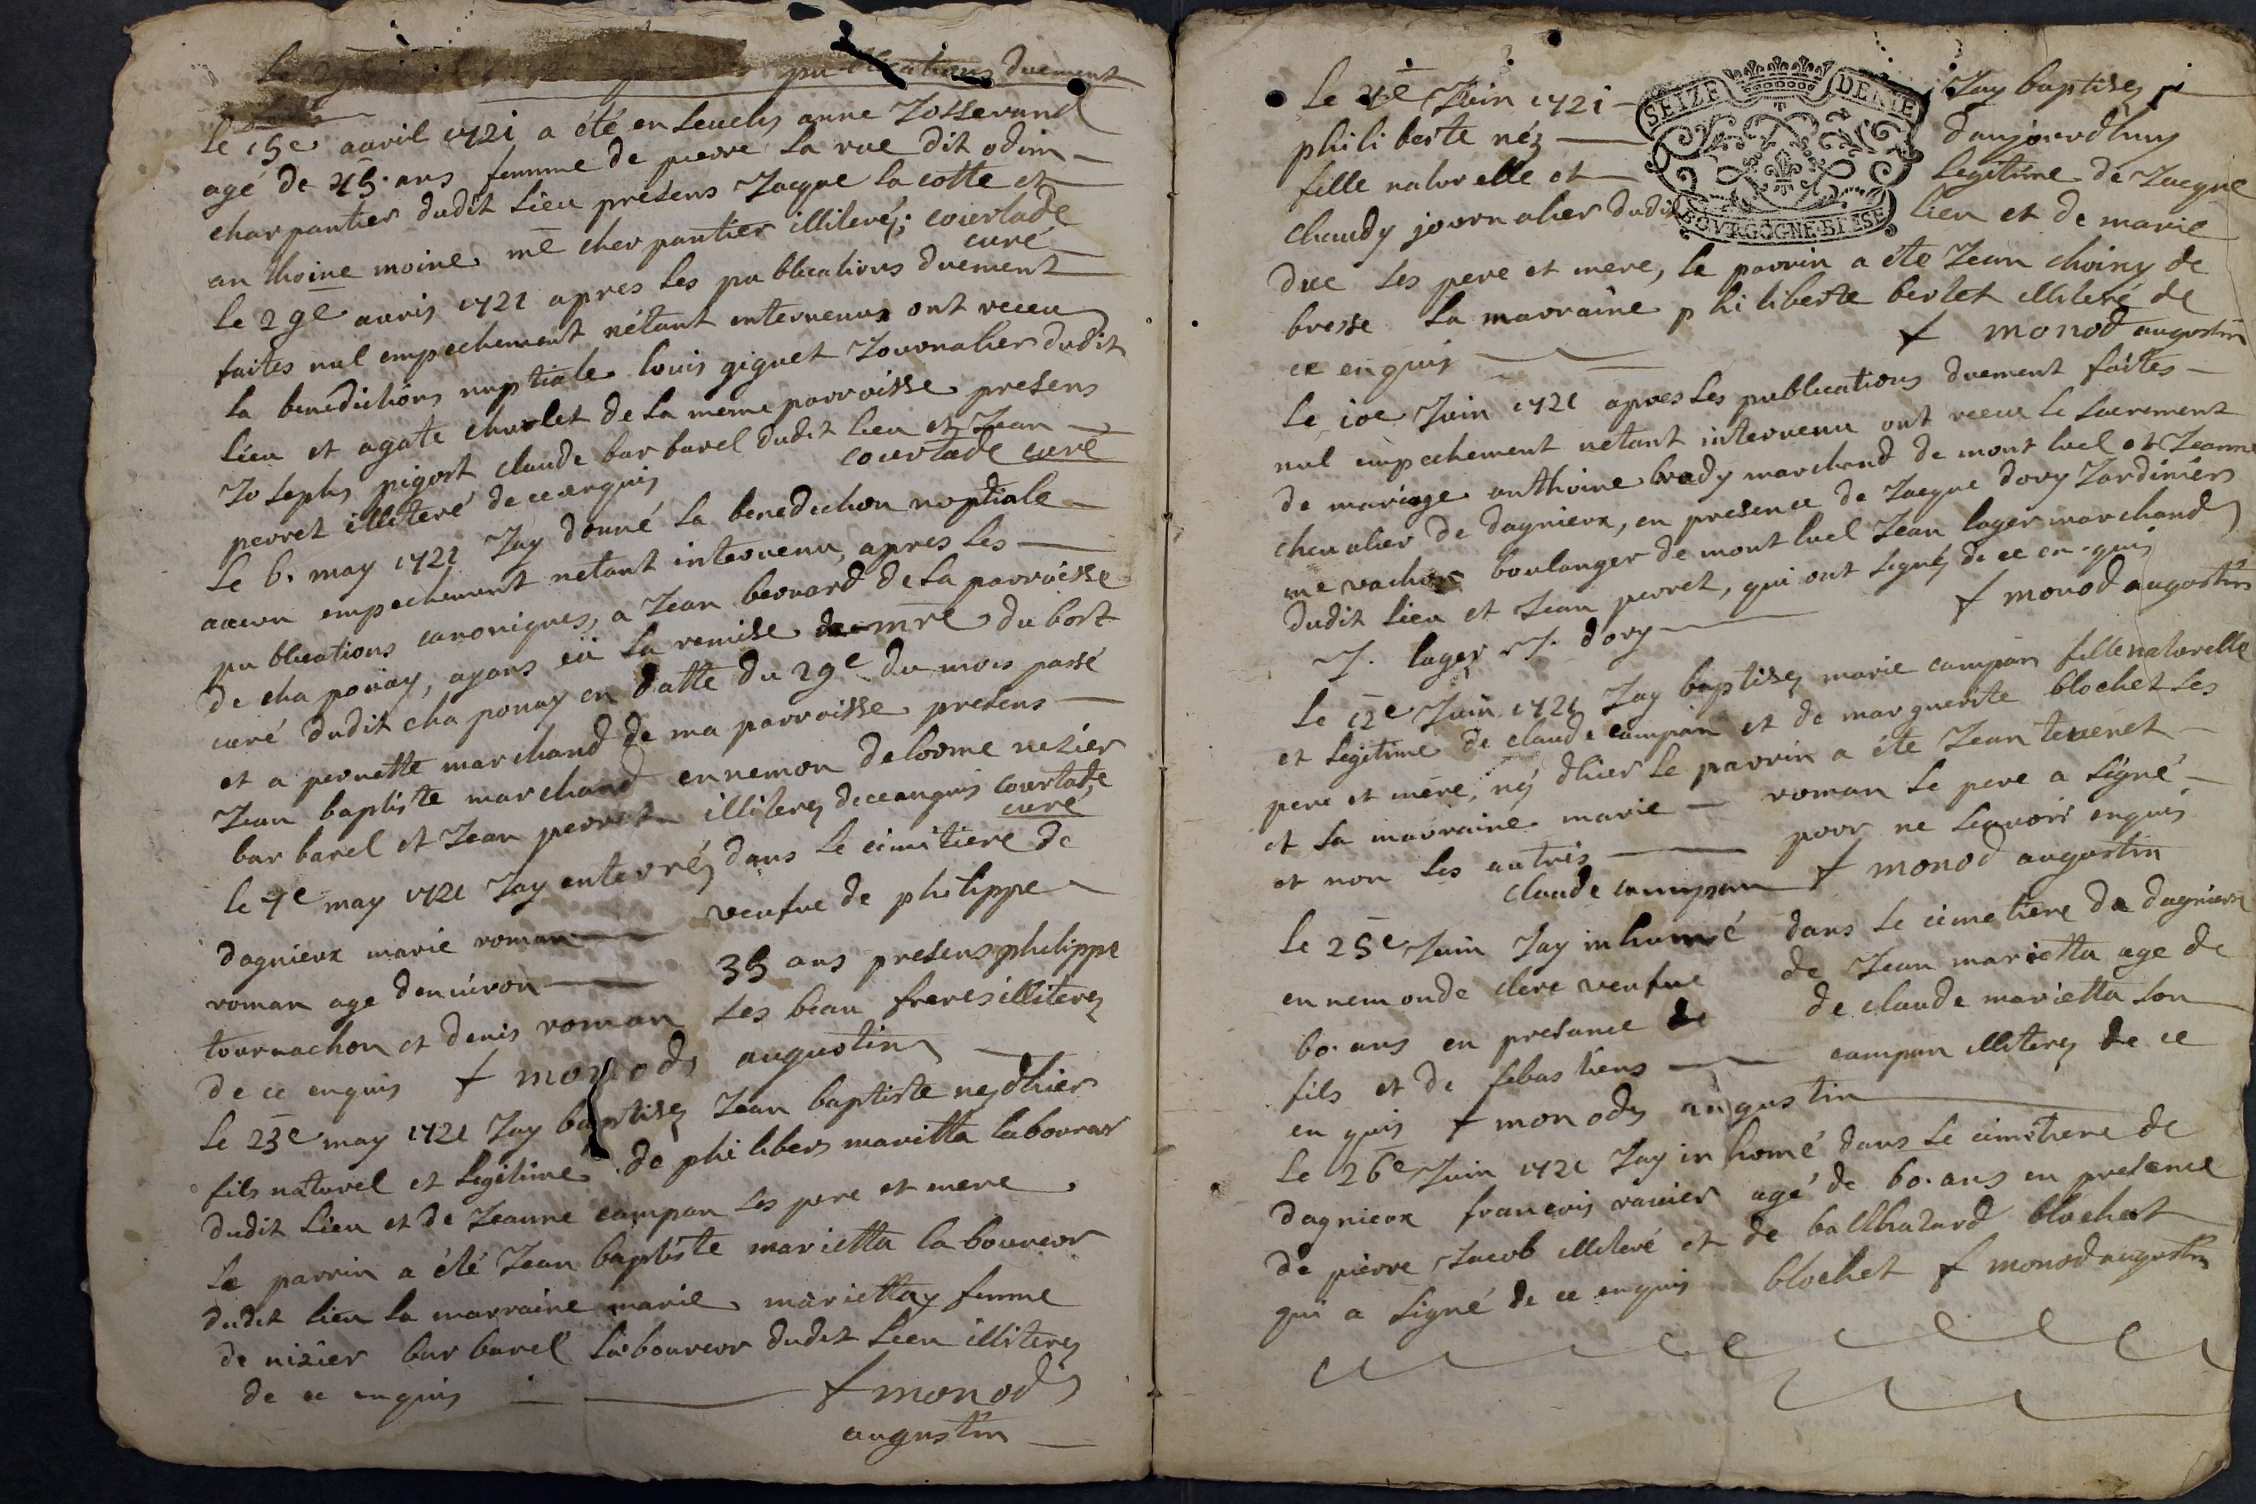 publications duement
le 15e auvril 1721 a été ensevely anne Josserand
agé de 45. ans femme de pierre la rue dit odin
charpantier dudit lieu presens Jacque la cotte et
anthoine moine me charpantier illiteréz courtade
curé
le 29e auris 1721 apres les publications duement
faites nul empechement n'étant intervenus ont receu
la benedictions nuptiale louis giguet Journalier dudit
lieu et agate charlet de la meme parroisse presens
Josephs pigost claude barbarel dudit lieu et Jean
perret illiteré de ce enquis courtade curé
le 6. may 1721 Jay donné la benediction nuptiale
aucun empechement netant intervenu, apres les
publications canoniques, a Jean bernard de la parroisse
de chaponay, ayans eü la remise de mre du bost
curé dudit chaponay en datte du 29e du mois passé
et a pernette marchand de ma parroisse presens
Jean baptiste marchand ennemon delorme nezier
barbarel et Jean perret illiterez de ce enquis courtade
curé
le 4e may 1721 Jay enterréz dans le cimitiere de
dagnieux marie roman veufue de philippe
roman age denuiron 35 ans presens philippe
tournachon et denis roman ses beau freres illiterez
de ce enquis f monod augustin
le 23e may 1721 Jay baptisez Jean baptiste nez dhier
fils naturel et legitime de philibert marietta laboureur
dudit lieu et de Jeanne campan ses pere et mere
le parrin a été Jean baptiste marietta laboureur
dudit lieu la marraine marie mariettaz femme
de nizier barbarel laboureur dudit lieu illiterez
de ce enquis f monod
augustin
le 4e Juin 1721 Jay baptisez
SEIZE DENIE
philiberte néz daujourdhuy
fille naturelle et legitime de Jacque
chaudy journalier dudit lieu et de marie
BOVRGOGNE BRESSE
duc ses pere et mere, le parrin a éte Jean choiny de
bresse la marraine philiberte berlet illiteré de
ce enquis f monod augustin
le 10e Juin 1721 apres les publications duement faites
nul empechement netant intervenu ont receu le sacrement
de mariage anthoine brady marchand de montluel et Jeanne
chevalier de dagnieux, en presence de Jacque dory Jardiniers
me vachon boulanger de montluel Jean lager marchand
dudit lieu et Jean perret, qui ont signéz de ce enquis
J. lager J. dory f monod augustin
le 12e Juin 1721 Jay baptisez marie campan fille naturelle
et legitime de claude campan et de marguerite blochet ses
pere et mere, néz dhier le parrin a éte Jean tevenet
et la marraine marie roman le pere a signé
et non les autres pour ne scavoir enquis
claude campan f monod augustin
le 25e Juin Jay inhumé dans le cimetiere de dagnieux
ennemonde clere veufue de Jean marietta age de
60. ans en presance de de claude marietta son
fils et de sebastiens campan illiterez de ce
enquis f monod augustin
le 26e Juin 1721 Jay inhomé dans le cimitiere de
dagnieux francois ravier agé de 60. ans en presence
de pierre Jacob illiteré et de balthazard blochet
qui a signé de ce enquis blochet f monod augustin